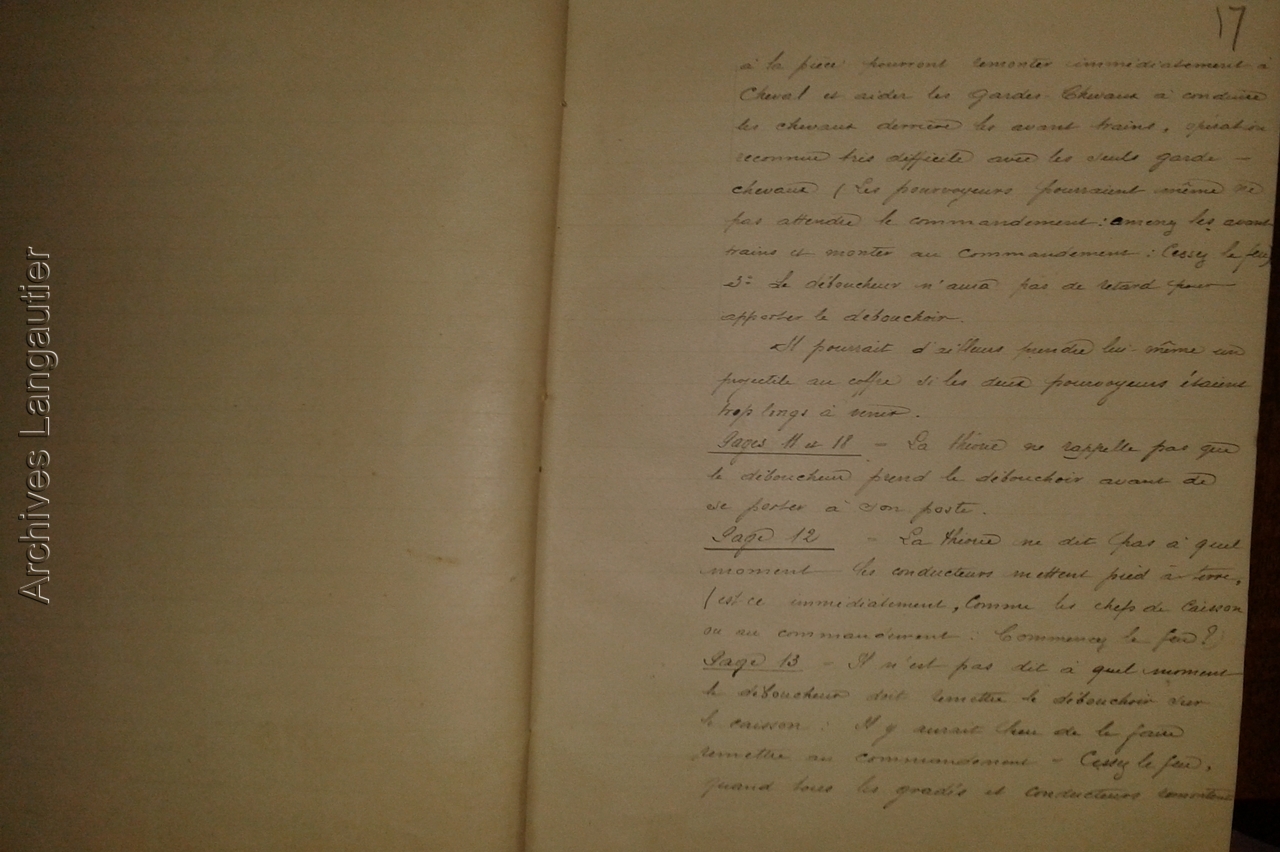 Archives Langautier
17
à la pièce pourront remonter immédiatement à
Cheval et aider les Gardes Chevaux à conduire
les chevaux derrière les avant trains, opération
reconnue très difficile avec les seuls garde -
chevaux (Les pourvoyeurs pourraient même ne
pas attendre le commandement : amenez les avant
trains et monter au commandement : Cessez le feu)
3° Le déboucheur n'aura pas de retard pour
apporter le débouchoir.
Il pourrait d'ailleurs prendre lui-même un
projectile au coffre si les deux pourvoyeurs étaient
trop longs à venir.
Pages 11 et 18 - La théorie ne rappelle pas que
le déboucheur prend le débouchoir avant de
se porter à son poste.
Page 12 - La théorie ne dit pas à quel
moment les conducteurs mettent pied à terre,
(est ce immédiatement, comme les chefs de caisson
ou au commandement : Commencez le feu ?)
Page 13 - Il n'est pas dit à quel moment
le déboucheur doit remettre le débouchoir sur
le caisson : Il y aurait lieu de le faire
remettre au commandement - Cessez le feu,
quand tous les gradés et conducteurs remontent